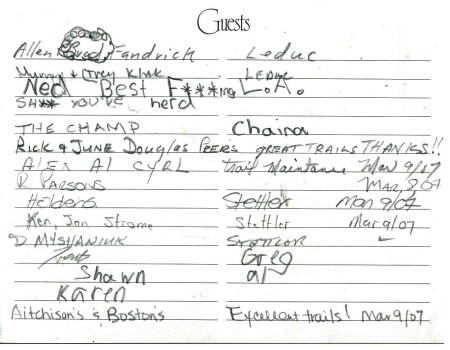 Guests
Allen Brad Fandrich Leduc
& Trey Klok Leduc
Ned Best F***ing L.A.
SH** YOU'VE herd
THE CHAMP China
RICK & JUNE DOUGLAS PEERS GREAT TRAILS THANKS!!
ALEX AL CYRL trail Maintance Mar 9/07
R PARSONS Mar, 9/07
Holdens Stettler Mar 9/07
Ken, Jon Strome Stettler Mar 9/07
D MYSHANIUK STETTLOR
Greg
Shawn al
Karen
Aitchison's & Boston's Excellent trails! Mar 9/07